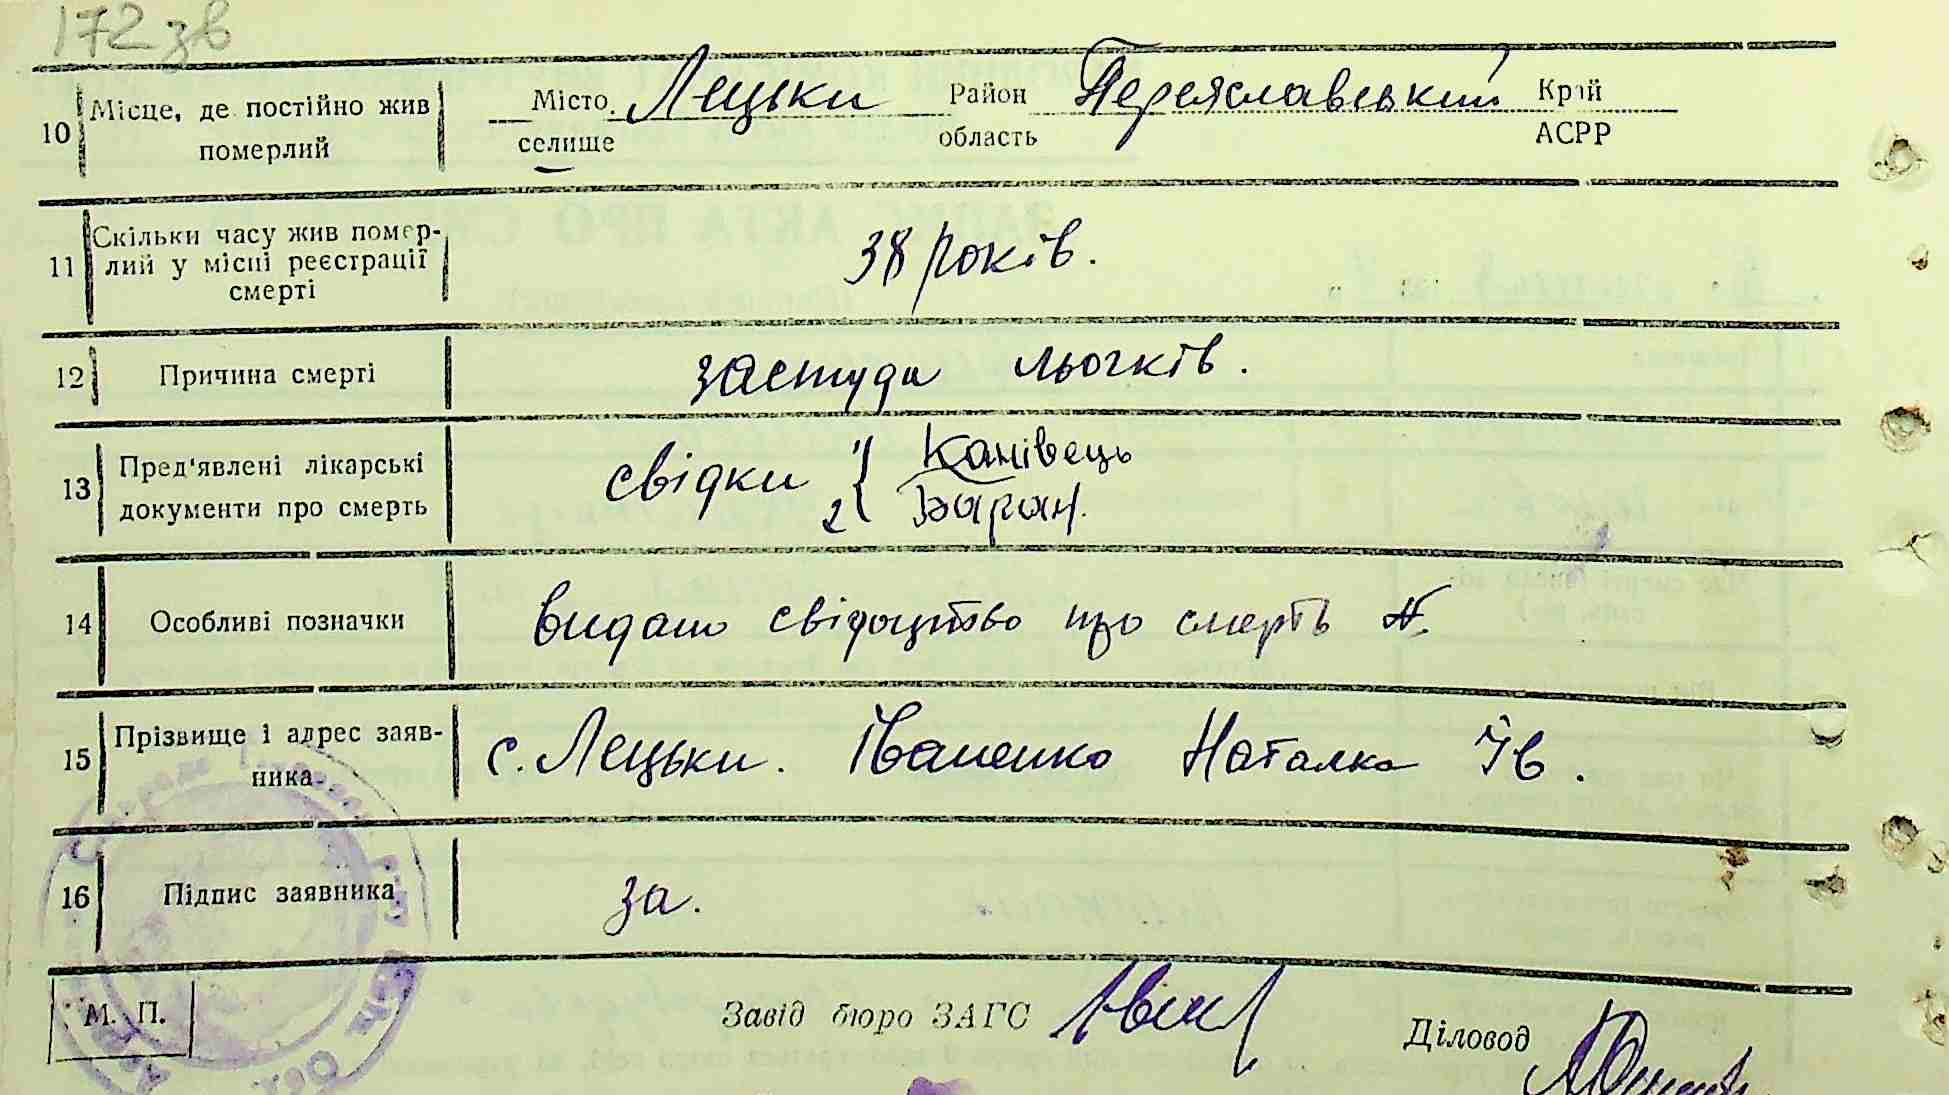 172 зв
10 Місце, де постійно жив померлий Місто селище Лецьки Район область Переяславський Край АСРР
11 Скільки часу жив помер-
лий у місці реєстрації
смерті 38 років.
12 Причина смерті застуда льогків.
13 Пред'явлені лікарські
документи про смерть свідки 1 Канівець
2 Баран.
14 Особливі позначки видано свідоцтво про смерть №.
15 Прізвище і адрес заяв-
ника с. Лецьки. Іваненко Наталка Ів.
16 Підпис заявника за.
М. П. Завід бюро ЗАГС Діловод